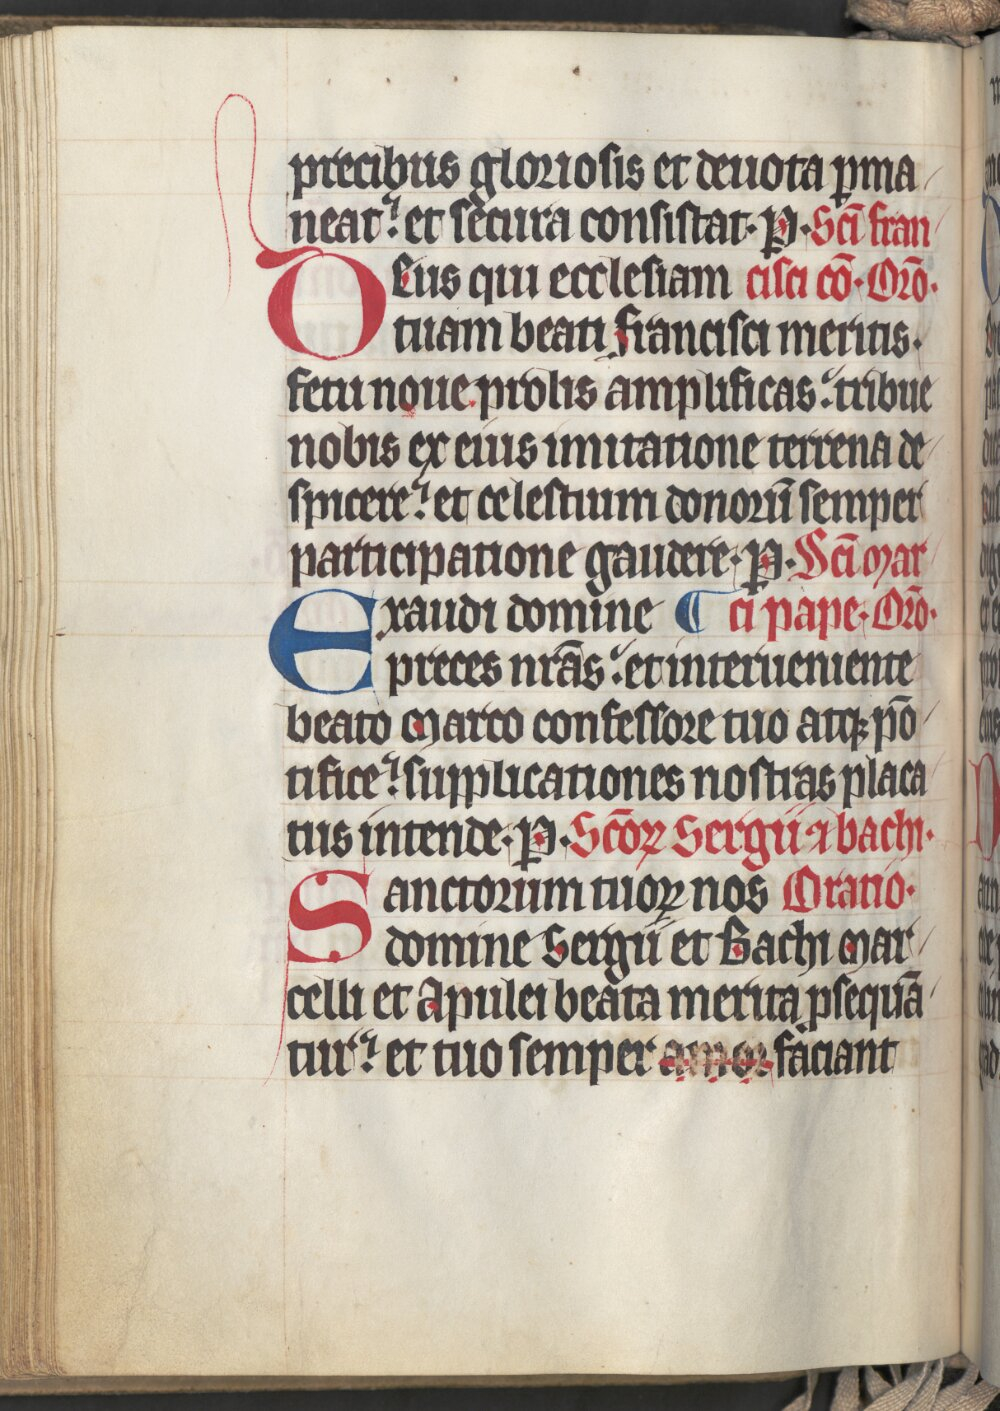 precibus gloriosis et deuota ꝑma
neat: et secura consistat. P. Sci fran
Deus qui ecclesiam cisci cō. Orō.
tuam beati francisci meritis.
fetu noue prolis amplificas: tribue
nobis ex eius imitatione terrena de
spicere: et celestium donorū semper
participatione gaudere. P. Sci mar
Exaudi domine ci pape. Orō.
preces nrās: et interueniente
beato marco confessore tuo atqꝫ pō
tifice: supplicationes nostras placa
tus intende. P. Scōꝝ Sergii ⁊ bachi.
Sanctorum tuoꝝ nos Oratio.
domine Sergii et Bachi mar
celli et Apulei beata merita ꝓsequā
tur: et tuo semper amore faciant